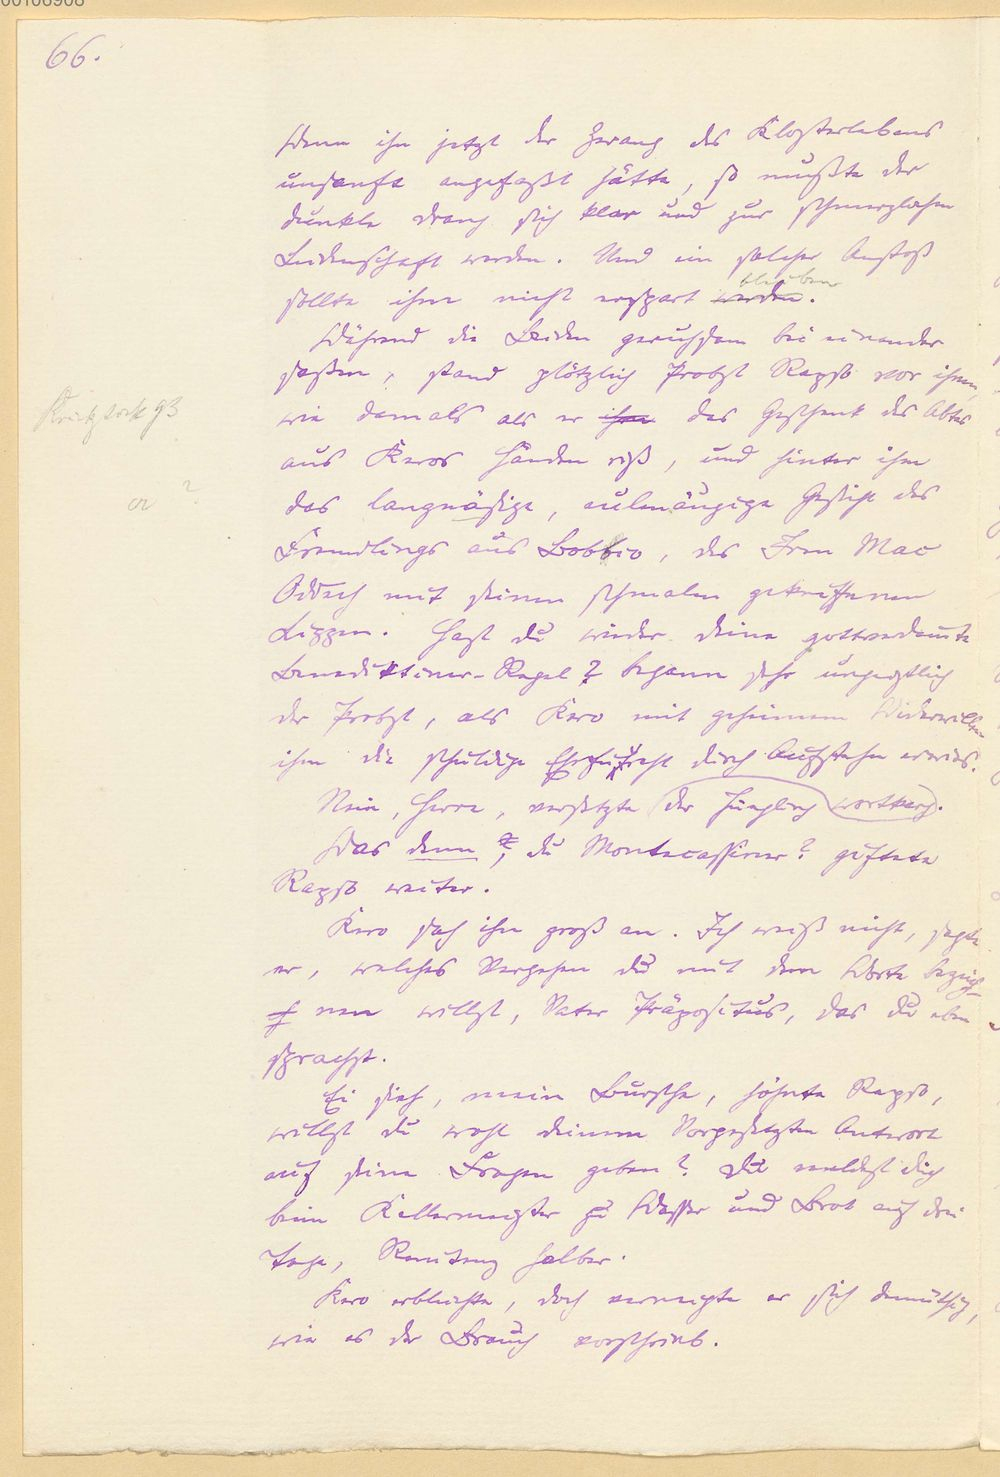 66.
Wenn ihn jetzt der Zwang des Klosterlebens
unsanft angefaßt hätte, so mußte der
dunkle Drang sich klar und zur schmerzlichen
Leidenschaft werden. Und ein solcher Anstoß
sollte ihm nicht erspart werden. bleiben
Während die Beiden geruhsam bei einander
saßen, stand plötzlich Probst Rapso vor ihnen,
wie damals als er ihm das Geschenk des Abtes
aus Keros Händen riß, und hinter ihm
das langnäsige, eulenäugige Gesicht des
Fremdlings aus Bobbio, des Iren Mac
mit seinen schmalen gekniffenen
Lippen. Hast du wieder deine gottverdammte
Benediktiner-Regel? begann sehr ungeistlich
der Probst, als Kero mit geheimem Widerwillen
ihm die schuldige Ehrfurcht durch Aufstehn erwies.
Nein, Herre, versetzte der Jüngling wortkarg.
Was denn?, du Montecassiner? giftete
Rapso weiter.
Kero sah ihn groß an. Ich weiß nicht, sagte
er, welches Vergehen du mit dem Worte bezeich-
nen willst, Vater Präpositus, das du eben
sprachst.
Ei sieh, mein Bursche, höhnte Rapso,
willst du wohl deinem Vorgesetzten Antwort
auf seine Fragen geben? Du meldest dich
beim Kellermeister zu Wasser und Brot auf drei
Tage, Renitenz halber.
Kero erbleichte, doch verneigte er sich demüthig,
wie es der Brauch vorschrieb.